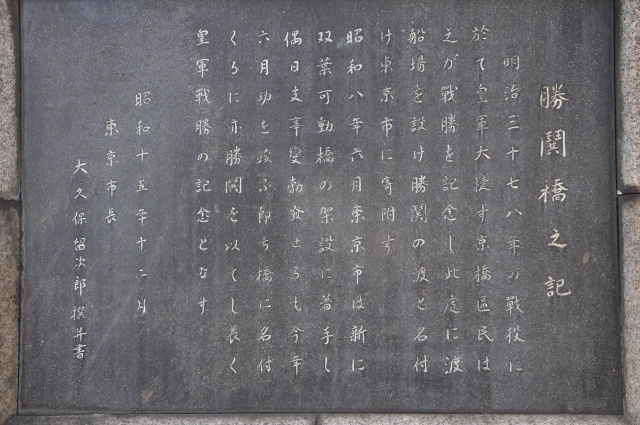 勝鬨橋之記
明治三十七八年の戦役に
於て皇軍大捷す京橋區民は
之が戦勝を記念し此處に渡
船場を設け勝鬨の渡と名付
け東京市に寄附す
昭和八年六月東京市は新に
双葉可動橋の架設に着手し
偶日支事變勃發せるも今年
六月功を竣ふ即ち橋に名付
くるに亦勝鬨を以てし長く
皇軍戰勝の記念となす
昭和十五年十二月
東京市長
大久保留次郎撰并書